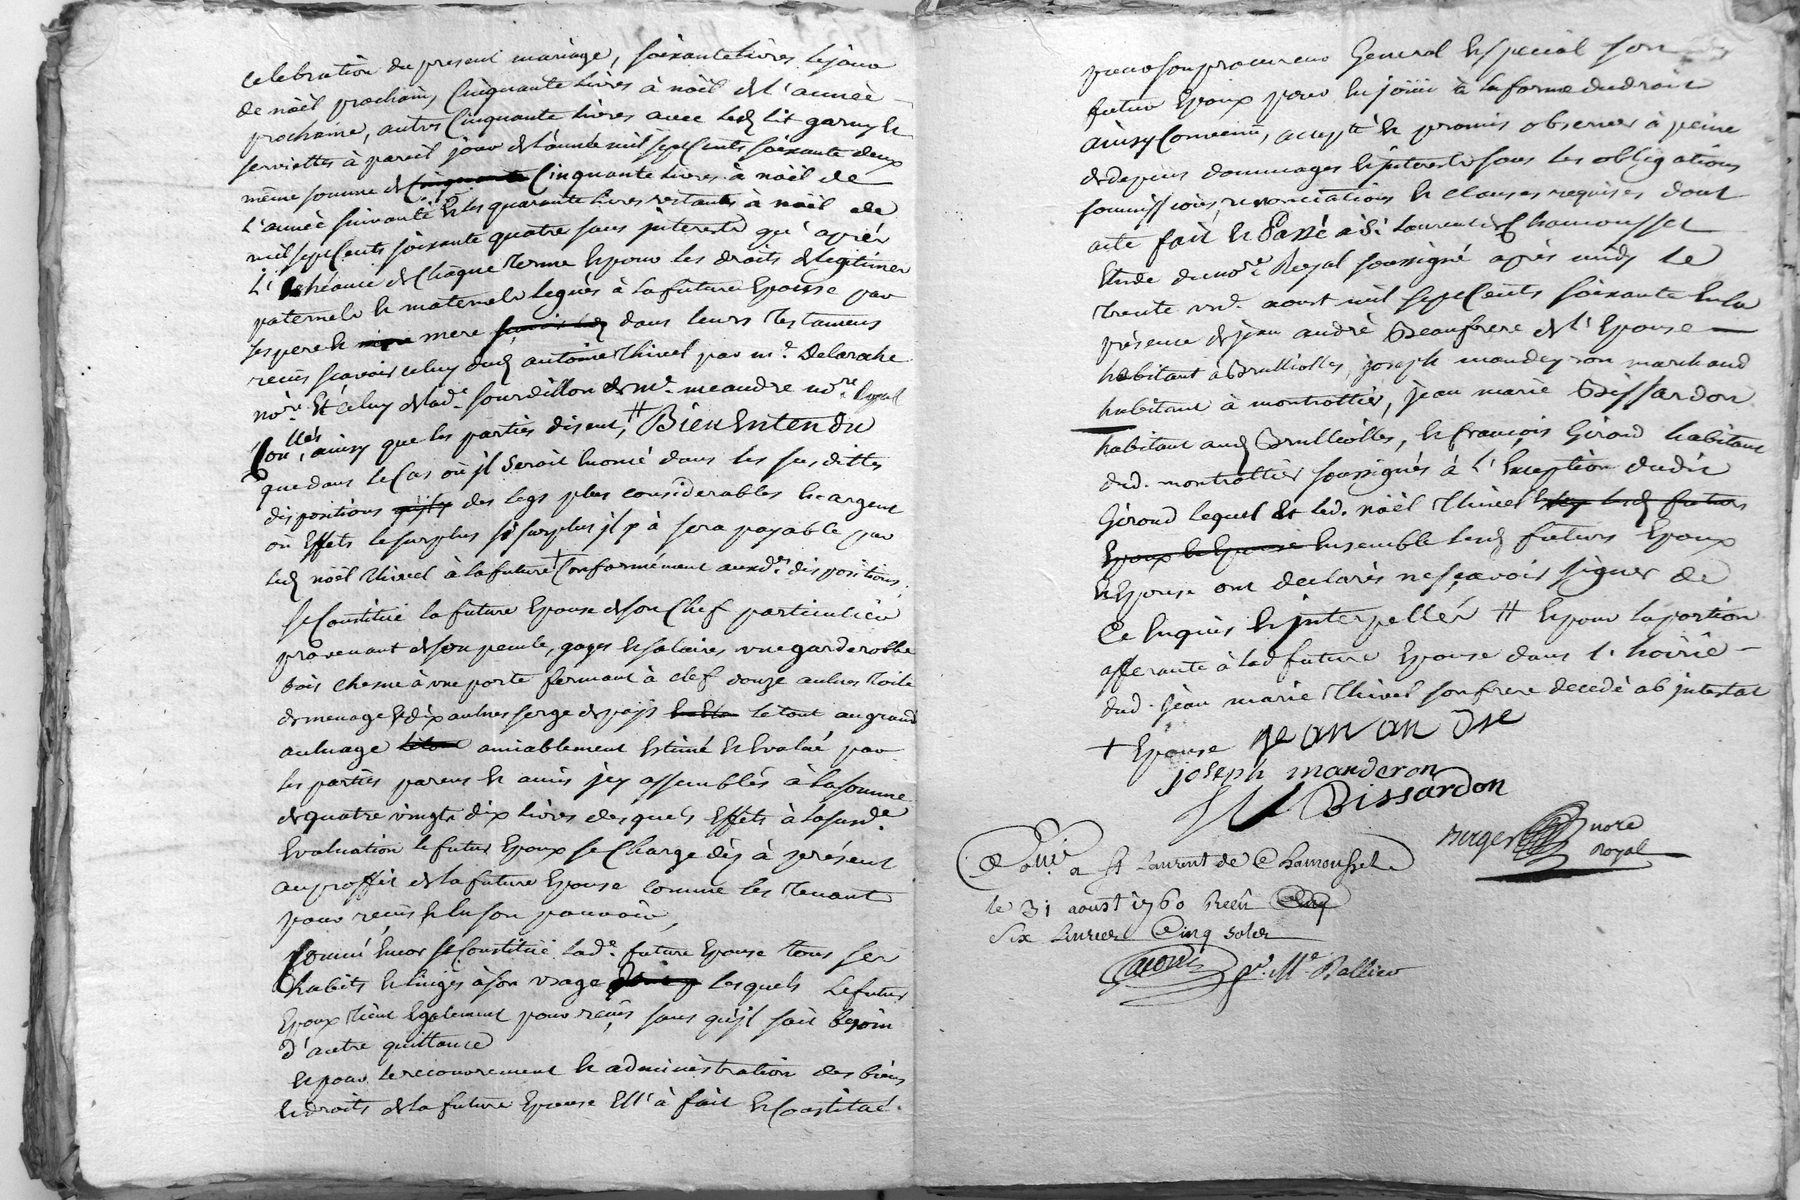 celebration du present mariage, soixante livres le jour
de noël prochain, Cinquante livres à noël de l'année
prochaine, autres Cinquante livres avec led lit garny et
serviettes à pareil jour de l'année mil sept Cents soixante deux
même somme de Cinquante Cinquante livres à noël de
L'année suivante et les quarante livres restants à noël de
mil sept Cents soixante quatre sans jnterests qu'après
L'Echéance de Chaque terme et pour les droits de legitimes
paternels et maternels legués à la future Epouse par
ses pere et mere dans leurs testamens
recüs scavoir celuy dud antoine thivel par me. Delaroche
nore. Et celuy de lade. sourdillon de me. meandre nore. Royal
ainsy que les parties disent, # Bien Entendu
que dans le Cas où jl seroit Enoncé dans les sus dittes
dispositions des legs plus considerables En argent
où Effets le surplus si surplus jl y à sera payable par
led noël thivel à la future + Conformément auxdes. dispositions,
se Constitue la future Epouse de son Chef particulier
provenant de son pecule, gages et salaires une garderobbe
bois chesne à une porte fermant à clef douze aulnes toile
de menage et dix aulnes serge de pays le tout au grand
aulnage amiablement Estimé et Evalué par
les parties parens et amis jcy assemblés à la somme
de quatre vingts dix livres desquels Effets à la susde.
Evaluation le futur Epoux se Charge dès à présent
au proffit de la future Epouse comme les tenant
pour recüs et en son pouvoir,
Comme Encor se Constitue lade. future Epouse tous ses
habits et linges à son usage lesquels le futur
Epoux tient Egalement pour recüs sans qu'jl soit besoin
d'autre quittance
et pour le recouvrement et administration des biens
et droits de la future Epouse Ell'à fait et Constitué
pour son procureur General et special son
futur Epoux pour en joüir à la forme du droit
ainsy Convenu, accepté et promis observer à peine
de depens dommages et jnterests sous les obligations
soumissions, renonciations et clauses requises dont
acte fait et Passé à St Laurent de Chamousset
Etude du nore. Royal soussigné après midy le
trente un. aoust mil sept Cents soixante En la
présence de jean andré Beaufrere de l'Epouse
habitant à Brulliolles, joseph mandeyron marchand
habitant à montrottier, jean marie Bissardon
habitant aud Brulliolles, et françois Giroud habitant
dud. montrottier soussignés à L'Exception dudit
Giroud lequel et led. noël thivel et led futurs
Epoux et Epouse Ensemble lesd futurs Epoux
et Epouse ont declarés ne sçavoir signer de
Ce Enquis et jnterpellés # et pour la portion
afferante à lad future Epouse dans l'hoirie
dud. jean marie thivel son frere decedé ab jntestat
+ Epouse jean an dre
joseph manderon
Bissardon
nore
royal
Collé. a St Laurent de Chamousset
le 31 aoust 1760 Reçu
Six Livres Cinq solds
pr. Me Ballieu